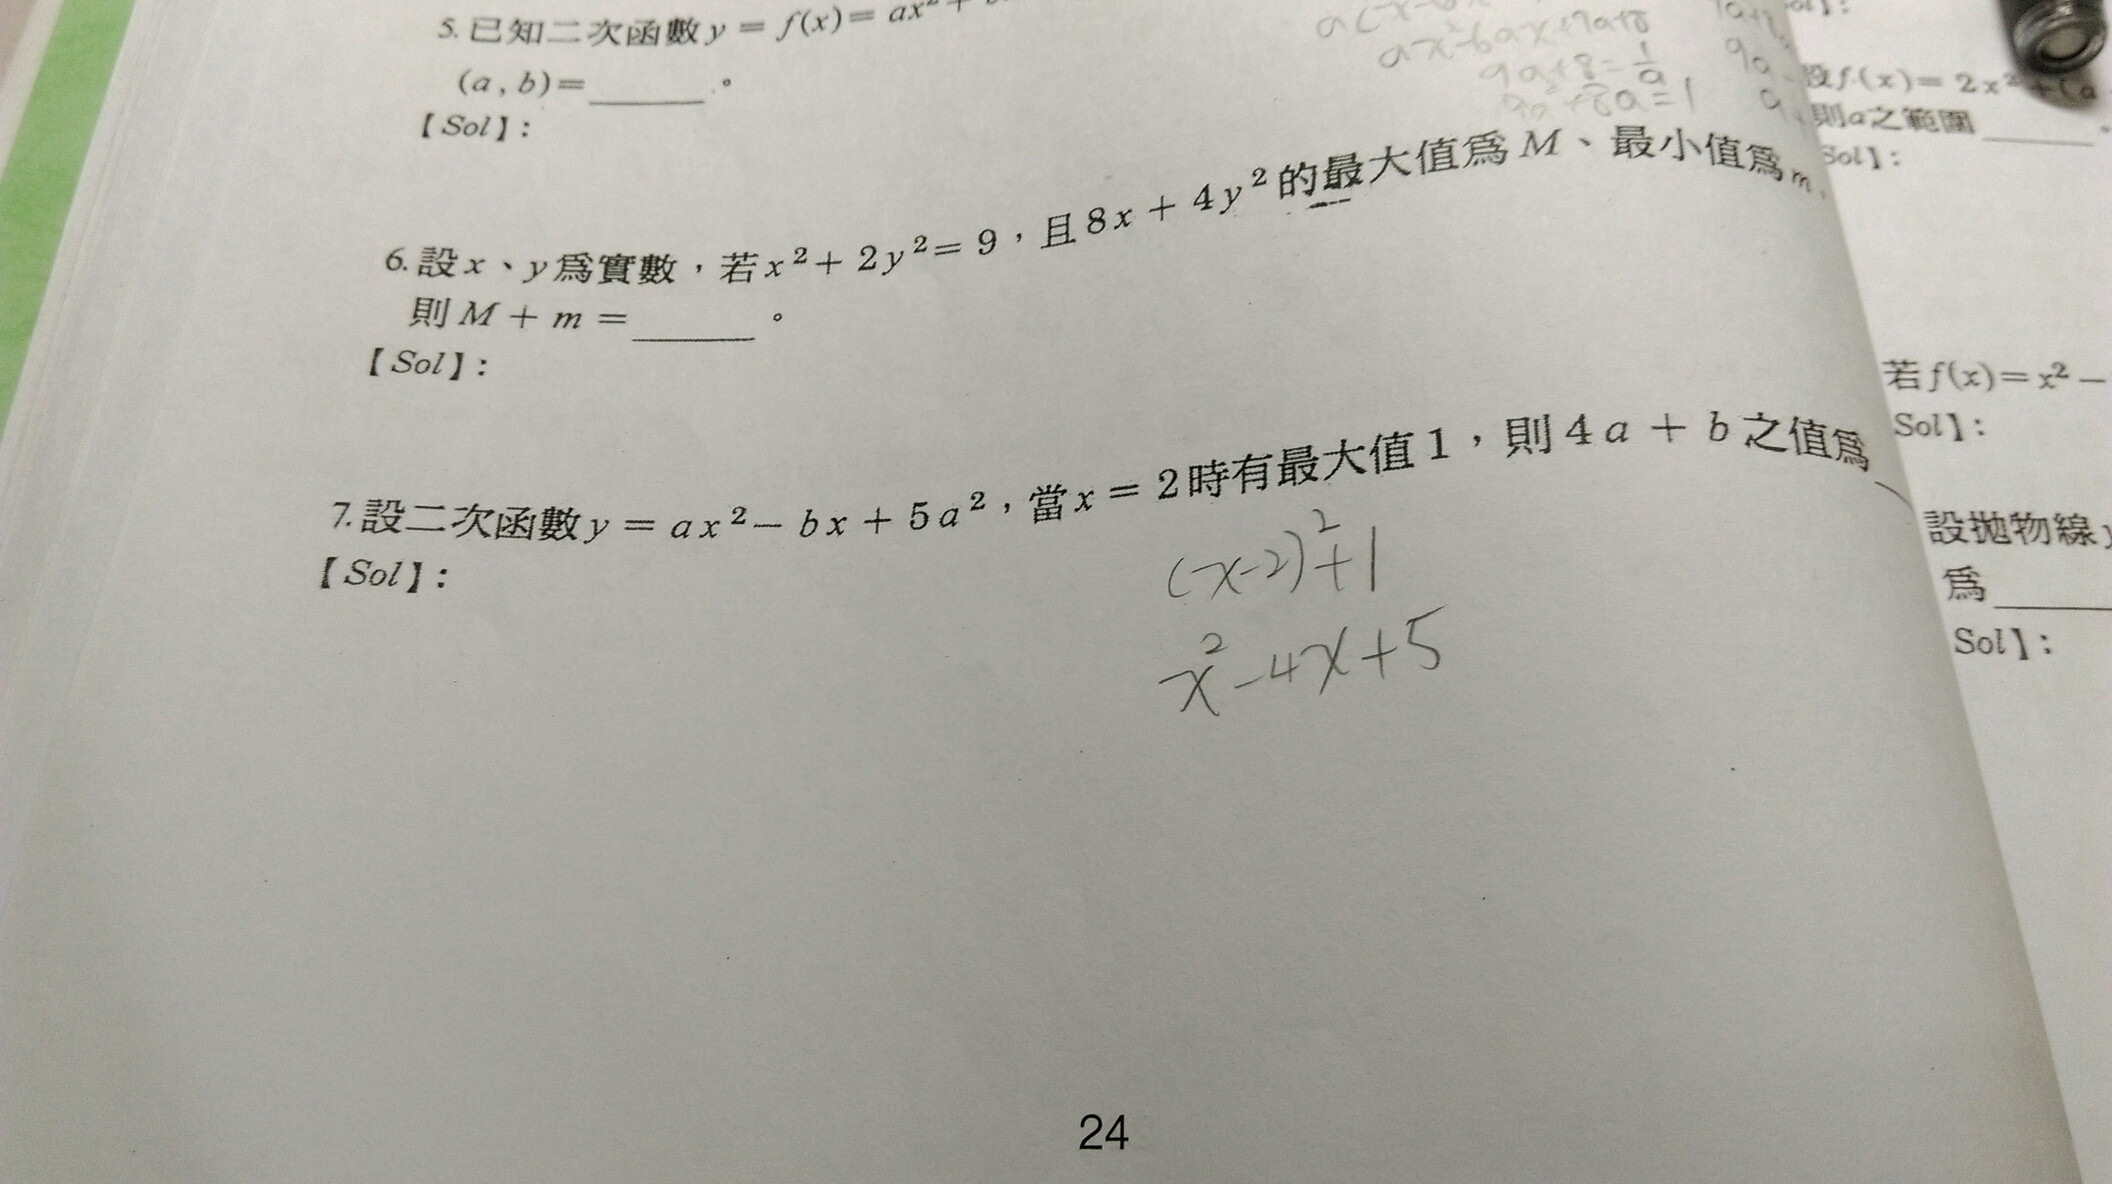 5. 已知二次函數 y = f(x) = ax² +
(a , b) = ______ 。
【Sol】:
ax²-6ax+9a+8
9a+8=1/a
9a²+8a=1
6. 設 x、y 為實數，若 x² + 2y² = 9，且 8x + 4y² 的最大值為 M、最小值為 m,
則 M + m = ______ 。
【Sol】:
7. 設二次函數 y = ax² − bx + 5a²，當 x = 2 時有最大值 1，則 4a + b 之值為
【Sol】:
(x-2)²+1
x²-4x+5
24
設 f(x) = 2x² + (a
則 a 之範圍 ______ 。
Sol】:
若 f(x) = x² −
Sol】:
設拋物線 y
為 ______
Sol】: